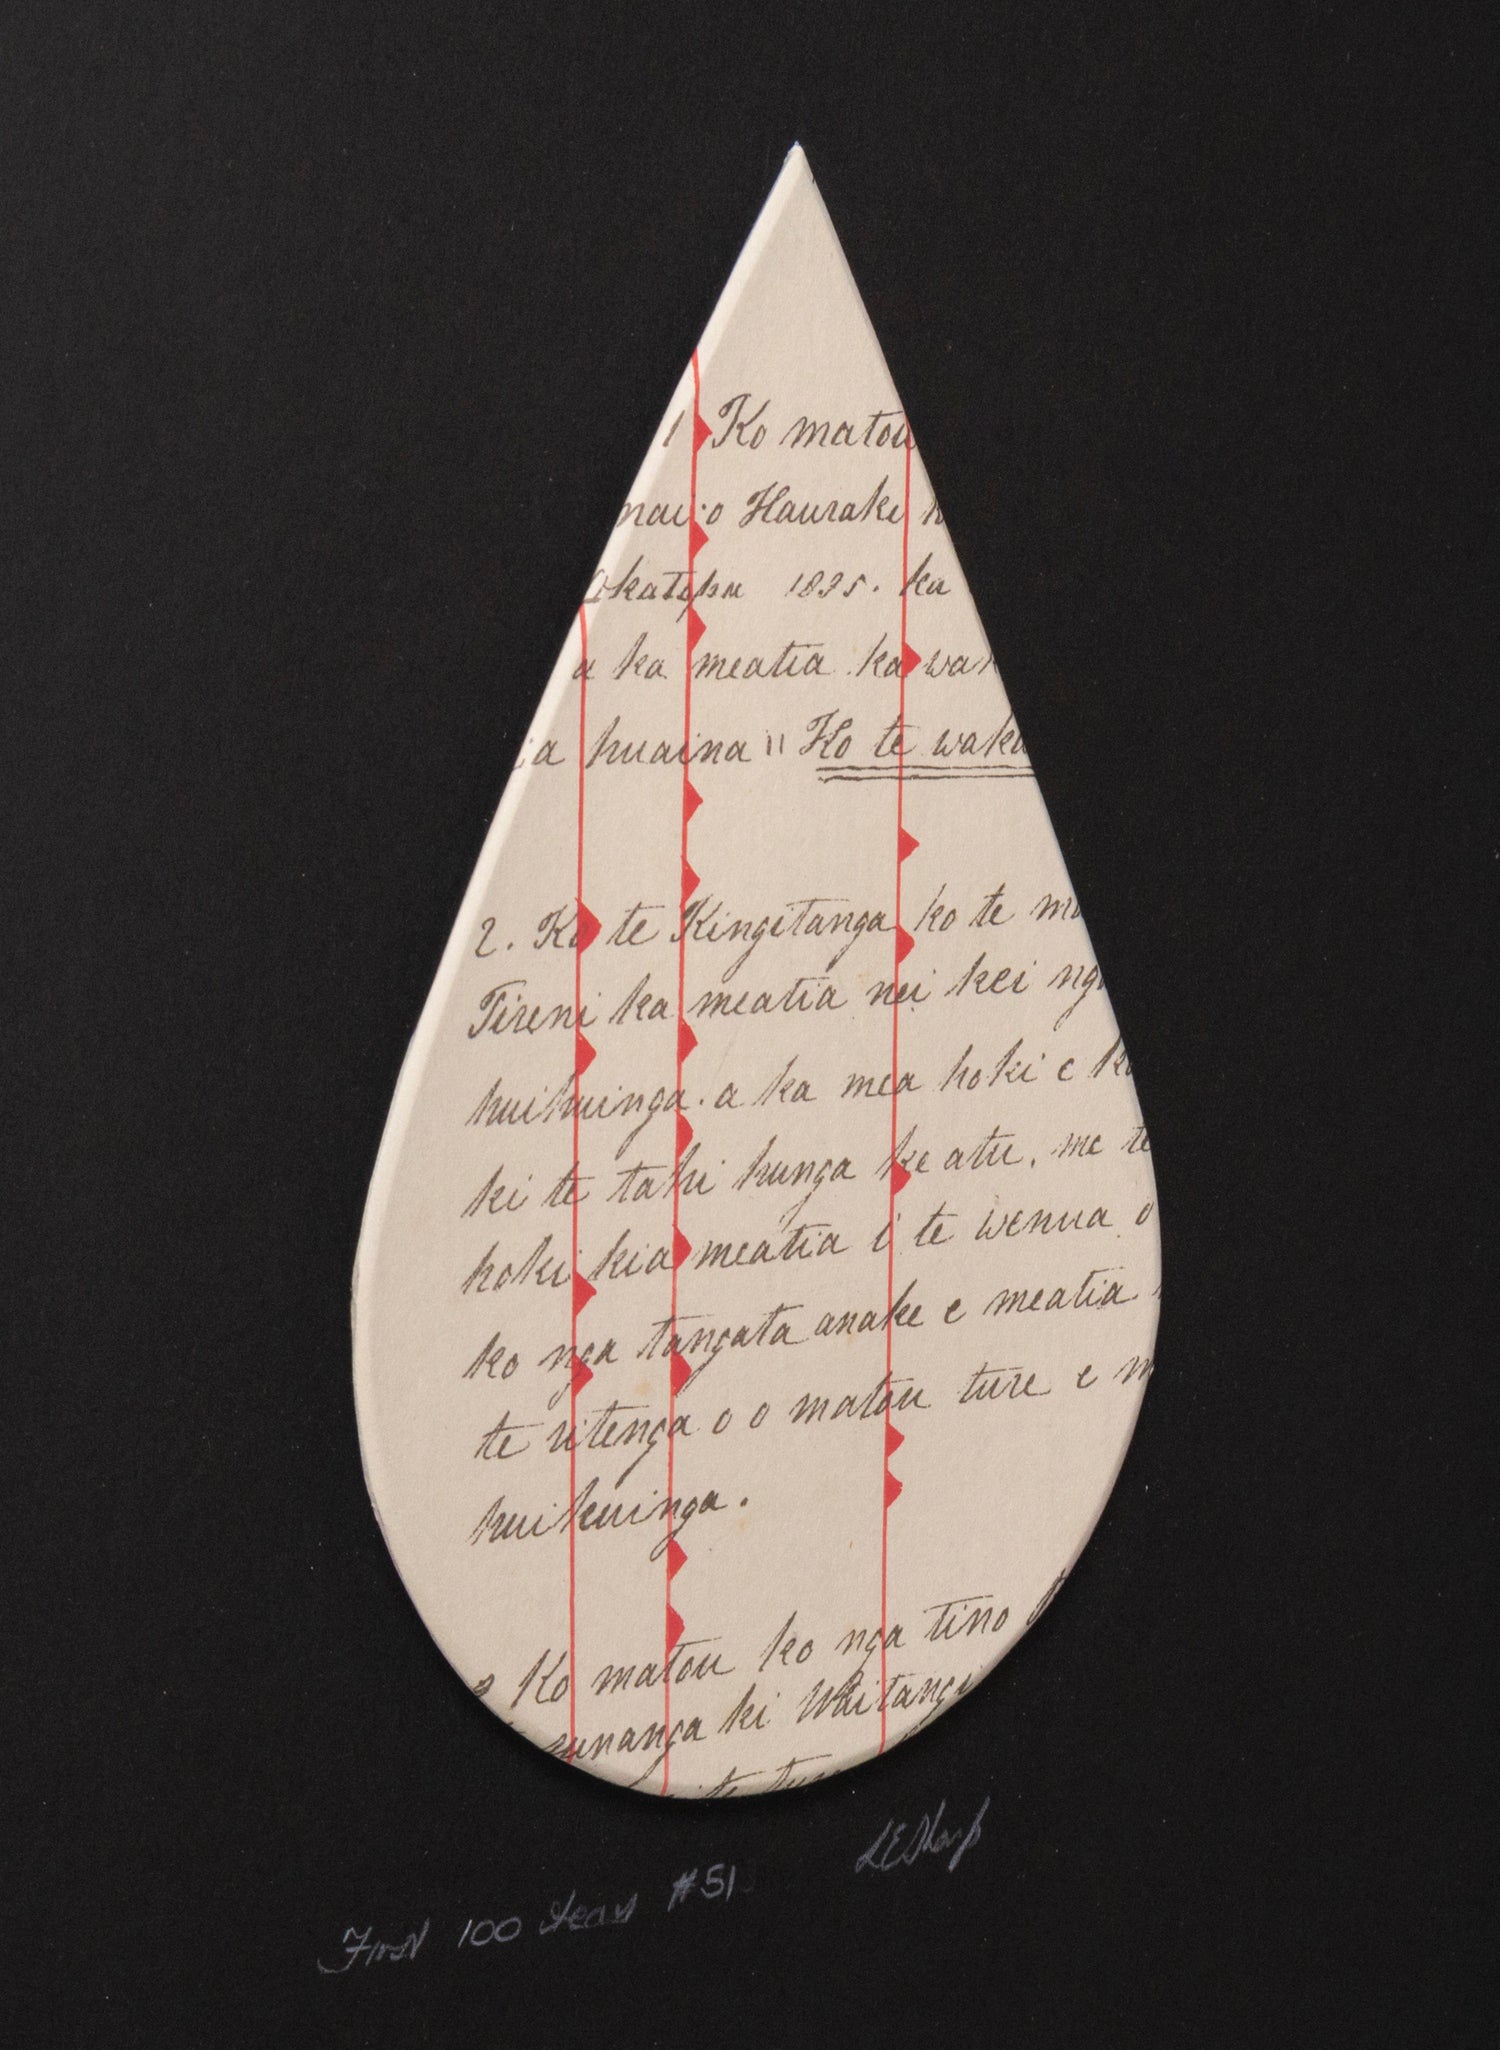 1 Ko matou
nai o Hauraki
Okatopu 1835. ka
a ka meatia ka wak
ia huaina " Ko te waka
2. Ko te Kingitanga ko te ma
Tireni ka meatia nei kei nga
huihuinga. a ka mea hoki e ko
ki te tahi hunga ke atu, me te
hoki kia meatia i te wenua o
ko nga tangata anake e meatia
te ritenga o o matou ture e m
huihuinga.
Ko matou ko nga tino
runanga ki Waitangi
te ture
First 100 Years #51
LESharp